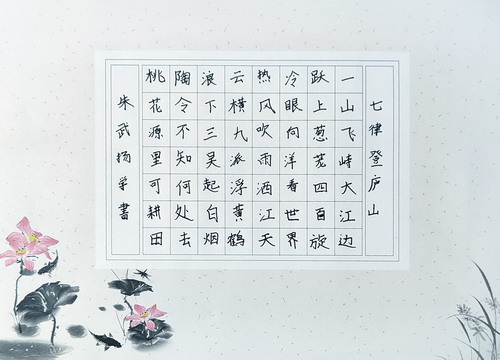 七律登庐山
一山飞峙大江边
跃上葱茏四百旋
冷眼向洋看世界
热风吹雨洒江天
云横九派浮黄鹤
浪下三吴起白烟
陶令不知何处去
桃花源里可耕田
朱武扬学書